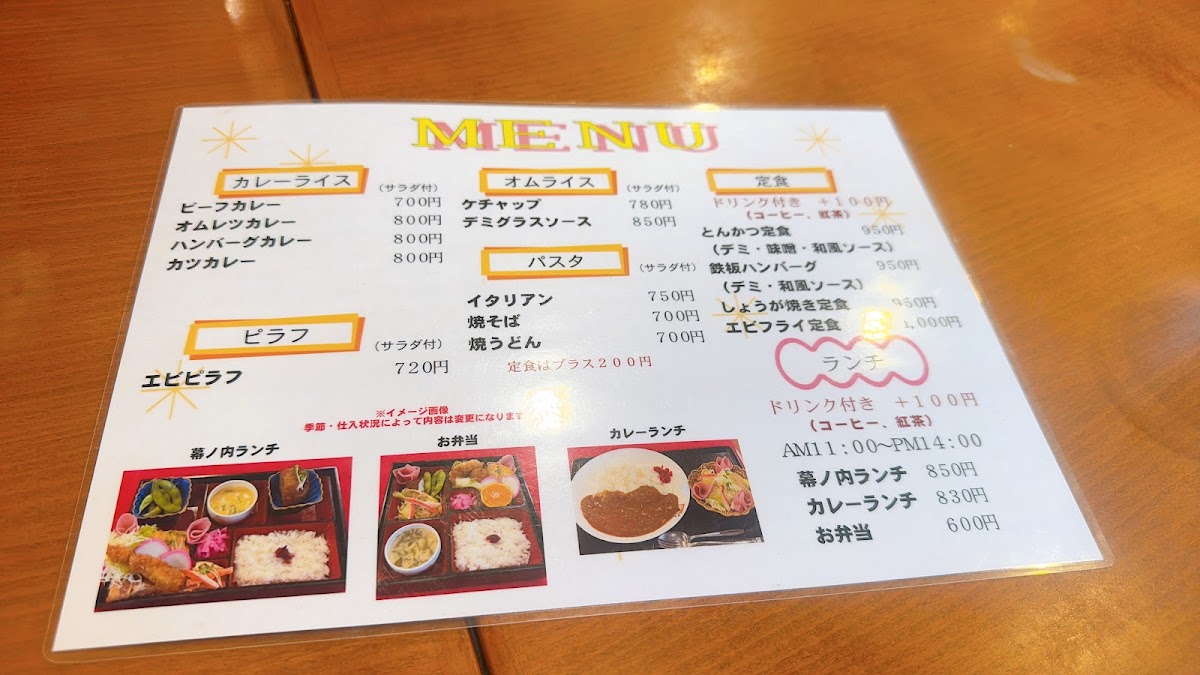 MENU
カレーライス
（サラダ付）
ビーフカレー 700円
オムレツカレー 800円
ハンバーグカレー 800円
カツカレー 800円
ピラフ
（サラダ付）
エビピラフ 720円
オムライス
（サラダ付）
ケチャップ 780円
デミグラスソース 850円
パスタ
（サラダ付）
イタリアン 750円
焼そば 700円
焼うどん 700円
定食はプラス２００円
定食
ドリンク付き ＋１００円
（コーヒー、紅茶）
とんかつ定食 950円
（デミ・味噌・和風ソース）
鉄板ハンバーグ 950円
（デミ・和風ソース）
しょうが焼き定食 950円
エビフライ定食 1,000円
ランチ
ドリンク付き ＋１００円
（コーヒー、紅茶）
AM11：00～PM14：00
幕ノ内ランチ 850円
カレーランチ 830円
お弁当 600円
※イメージ画像
季節・仕入状況によって内容は変更になります
幕ノ内ランチ
お弁当
カレーランチ